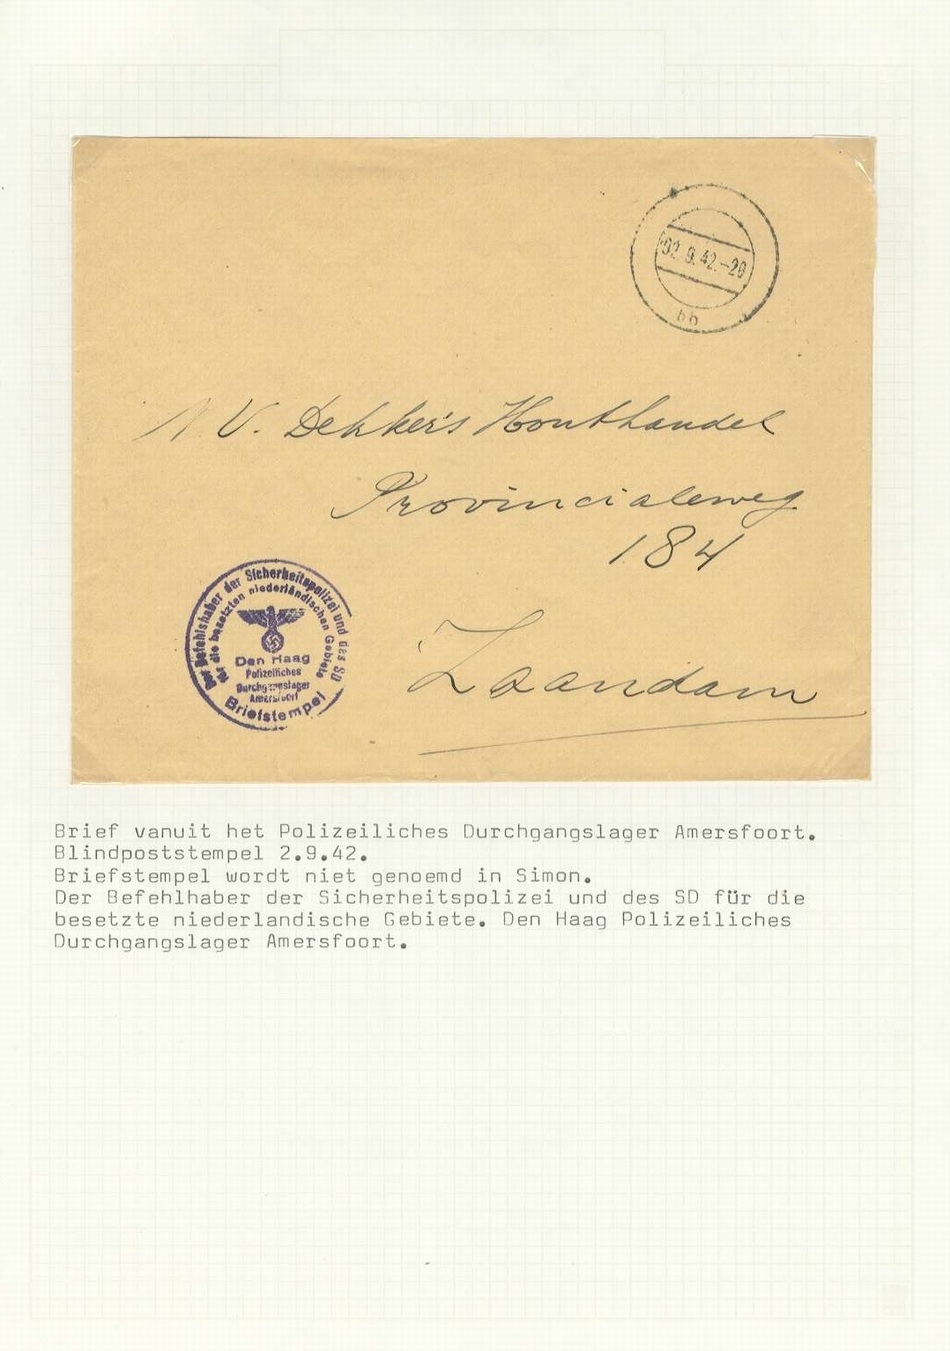 02.9.42.-20
bh
N.V. Dekker's Houthandel
Provincialeweg
184
Zaandam
Der Befehlshaber der Sicherheitspolizei und des SD
für die besetzten niederländischen Gebiete
Den Haag
Polizeiliches
Durchgangslager
Amersfoort
Briefstempel
Brief vanuit het Polizeiliches Durchgangslager Amersfoort.
Blindpoststempel 2.9.42.
Briefstempel wordt niet genoemd in Simon.
Der Befehlhaber der Sicherheitspolizei und des SD für die
besetzte niederlandische Gebiete. Den Haag Polizeiliches
Durchgangslager Amersfoort.